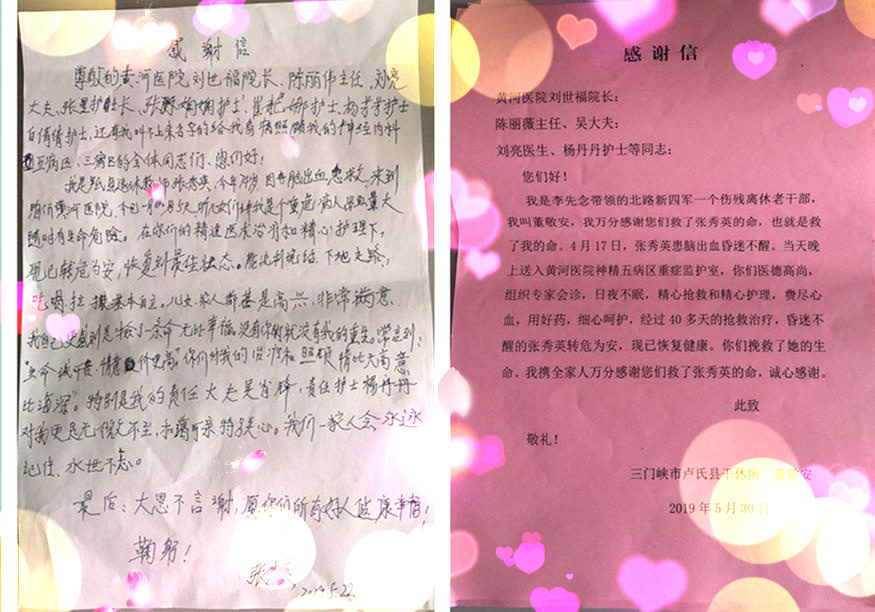 感谢信
尊敬的黄河医院刘世福院长、陈丽伟主任、刘亮
大夫、张星护士长、张 娟娟护士、崔 娜护士、杨芋芋护士
白倩倩护士,还有我叫不上来名字的给我看病照顾我的神经内科
五病区、三病区的全体同志们、您们好!
我是 退休教师张秀英,今年 岁,因 脑出血急救来到
咱们黄河医院,今已 天,听儿女们讲我是个重危病人出血量大
随时有生命危险。在你们的精湛医术治疗和精心护理下,
现已转危为安,恢复到最佳状态。能流利说话、下地走路,
吃、喝、拉、撒基本自主。儿女、家人都甚是高兴,非常满意
我自己更感到是捡了条命无比幸福,没有你们就没有我的重生。常言到:
生命诚可贵,情意价更高,你们对我的治疗和照顾情比天高意
比海深”。特别是我的责任大夫吴育锋,责任护士杨丹丹
对我更是无微不至,和蔼可亲特关心。我们一家人会永远
记住,永世不忘。
最后:大恩不言谢,愿你们所有好人健康幸福!
鞠躬!
张
2019.5.22
感谢信
黄河医院刘世福院长:
陈丽薇主任、吴大夫:
刘亮医生、杨丹丹护士等同志:
您们好!
我是李先念带领的北路新四军一个伤残离休老干部,
我叫董敬安,我万分感谢您们救了张秀英的命,也就是救
了我的命。4 月 17 日,张秀英患脑出血昏迷不醒。当天晚
上送入黄河医院神精五病区重症监护室,你们医德高尚,
组织专家会诊,日夜不眠,精心抢救和精心护理,费尽心
血,用好药,细心呵护,经过 40 多天的抢救治疗,昏迷不
醒的张秀英转危为安,现已恢复健康。你们挽救了她的生
命。我携全家人万分感谢您们救了张秀英的命,诚心感谢。
此致
敬礼!
三门峡市卢氏县干休所 董敬安
2019 年 5 月 30 日